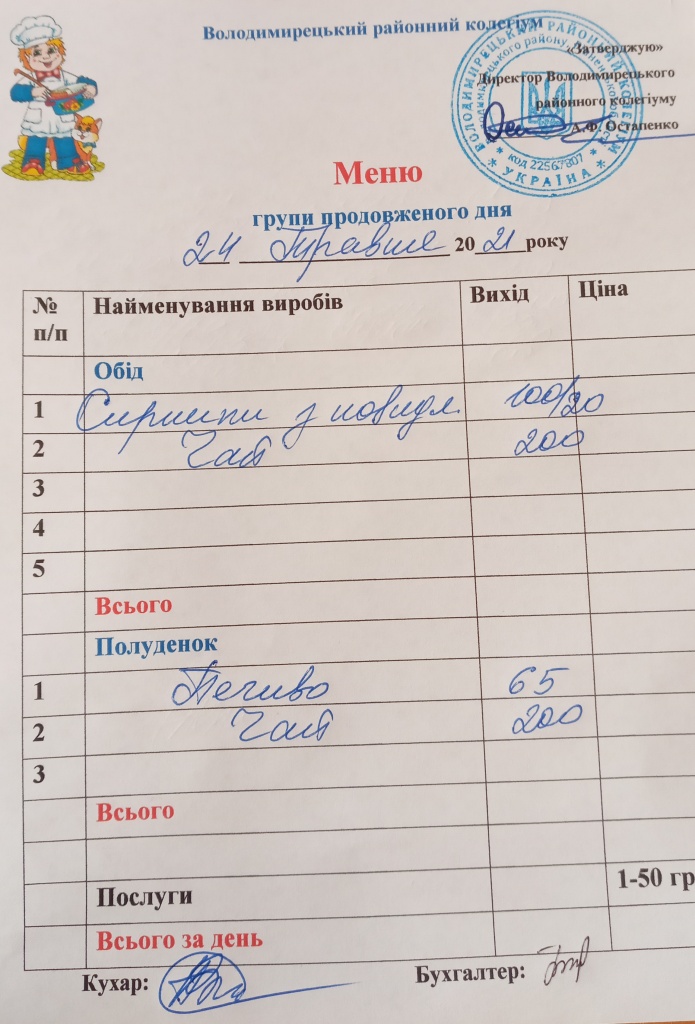 Володимирецький районний колегіум
«Затверджую»
Директор Володимирецького
районного колегіуму
А.Ф. Остапенко
ВОЛОДИМИРЕЦЬКИЙ РАЙОННИЙ КОЛЕГІУМ
* УКРАЇНА *
* код 22567807 *
Меню
групи продовженого дня
24 Травня 2021 року
№ п/п Найменування виробів Вихід Ціна
Обід
1 Сирники з повидл. 100/20
2 Чай 200
3
4
5
Всього
Полуденок
1 Печиво 65
2 Чай 200
3
Всього
Послуги 1-50 гр
Всього за день
Кухар: Бухгалтер: